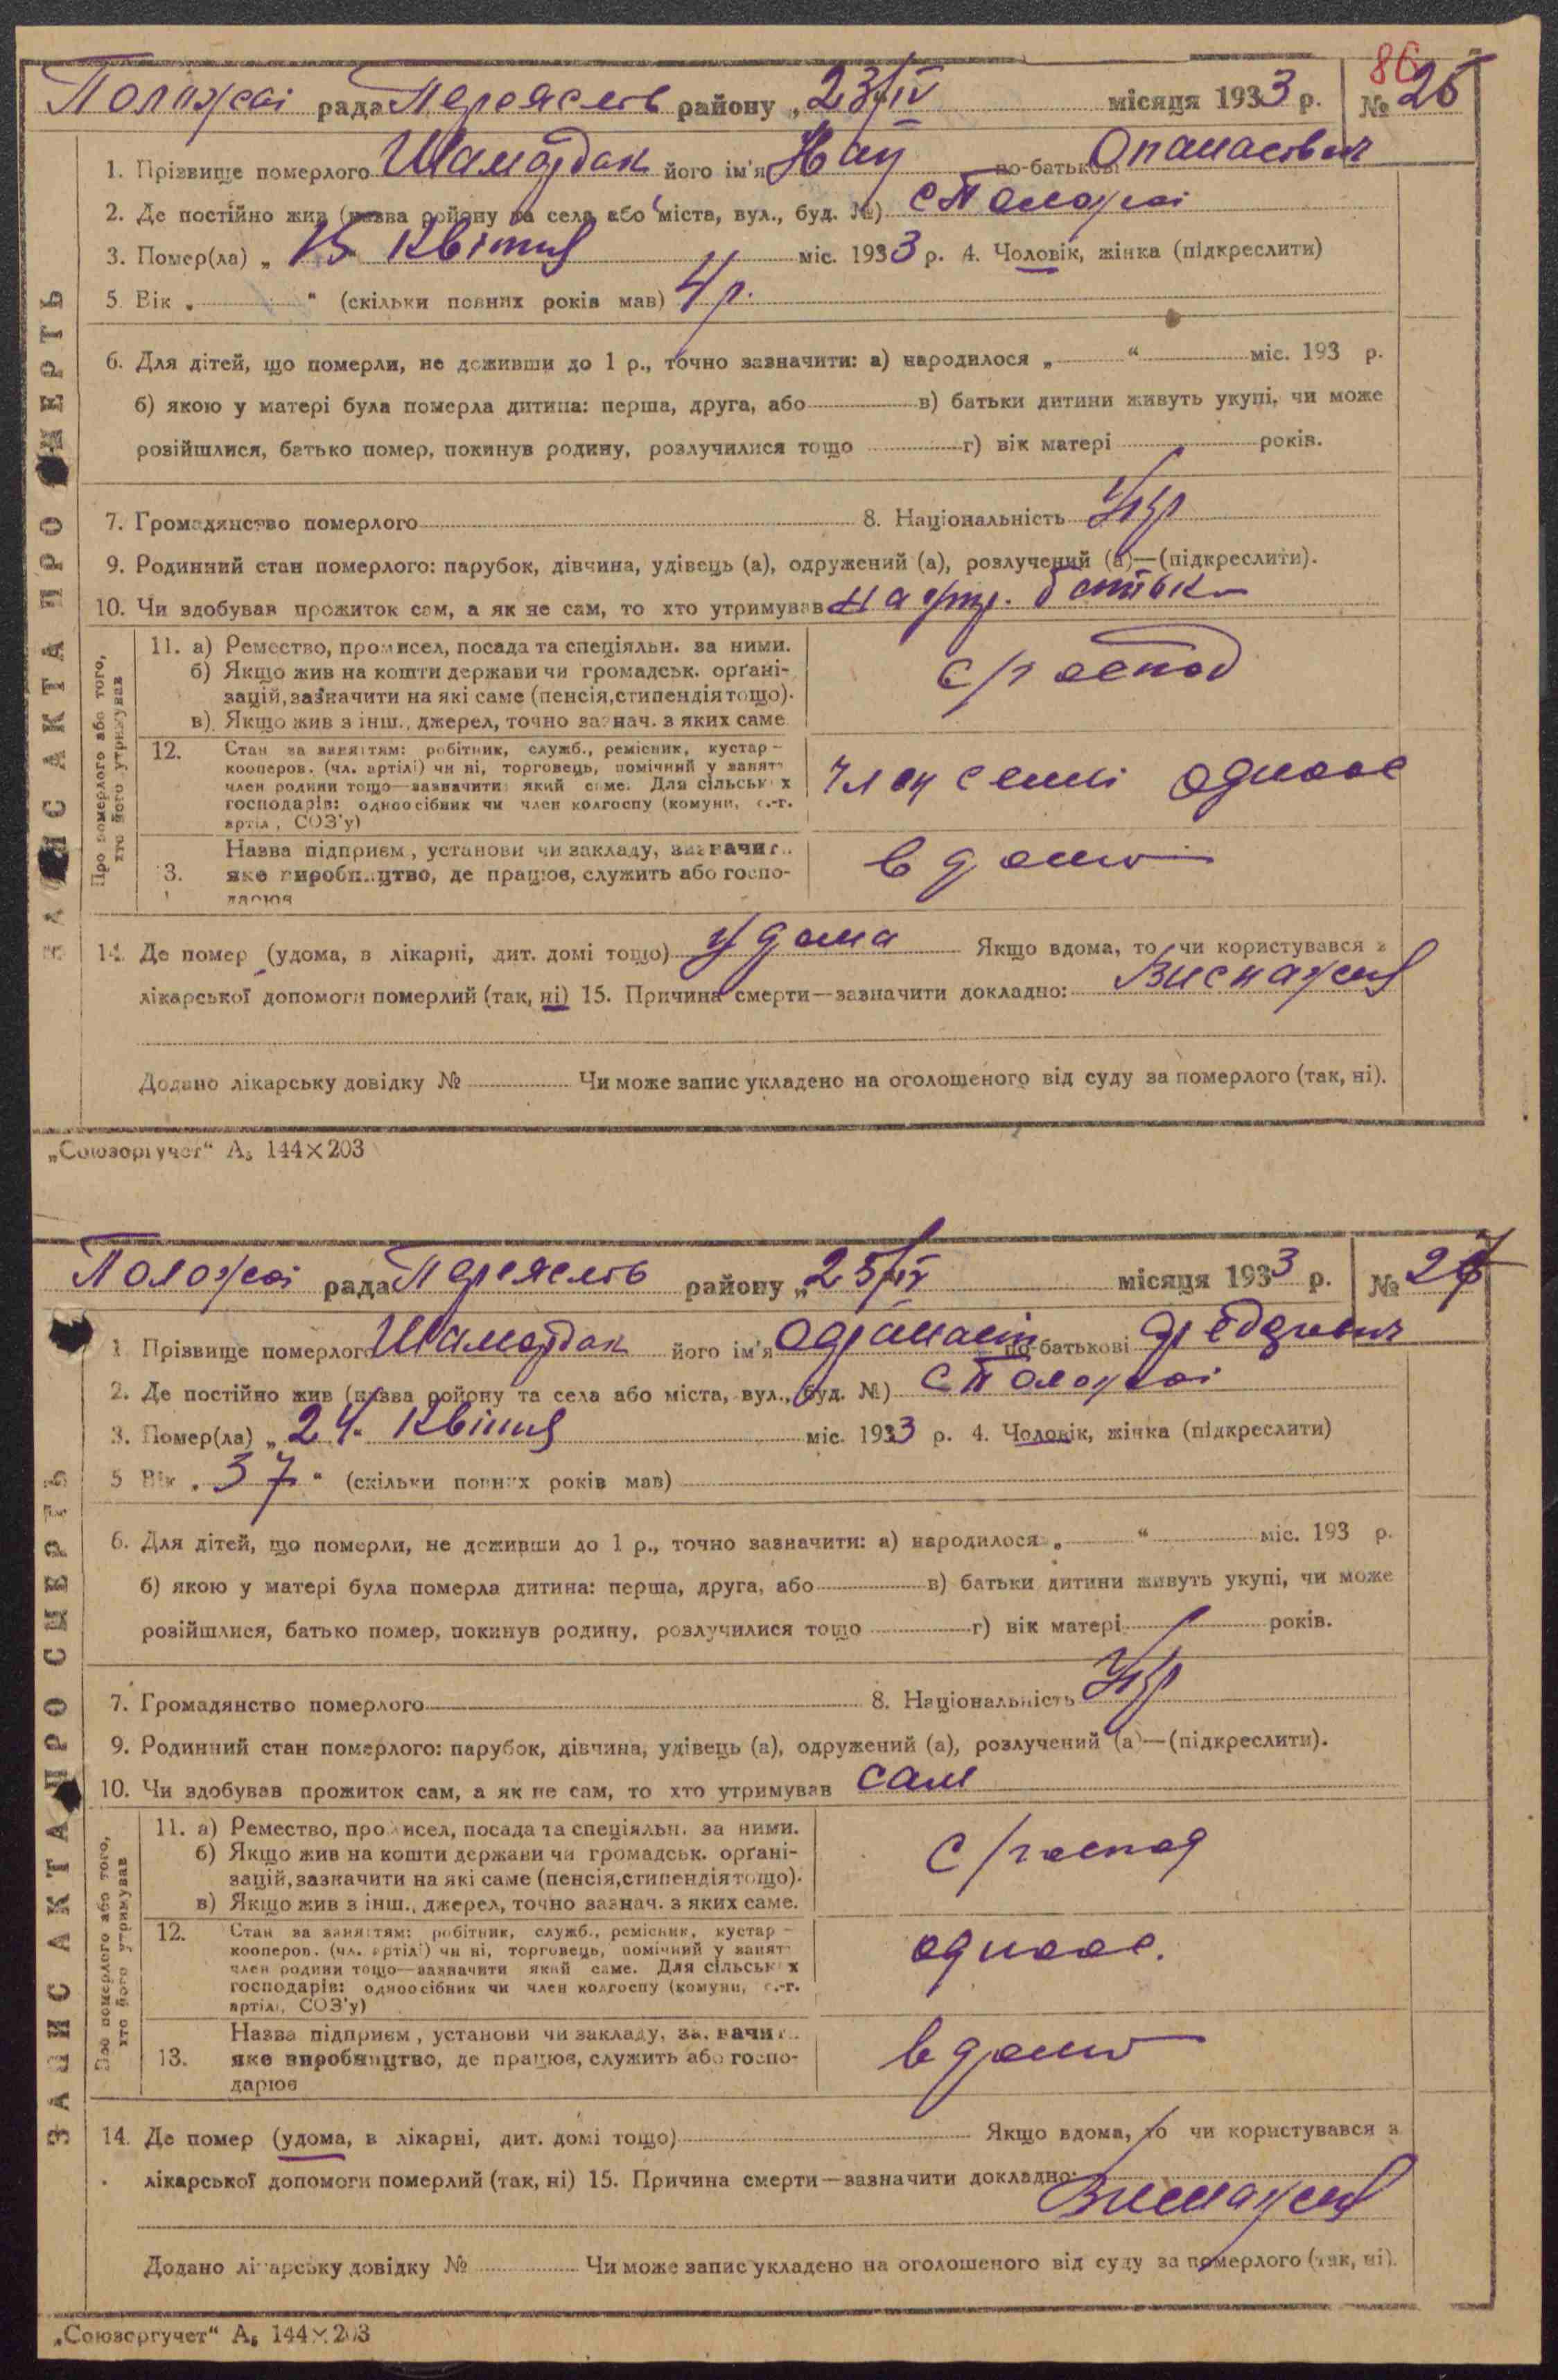 86
Положаї рада Переяслів району „ 23/IV місяця 1933 р. № 26
1. Прізвище померлого Шамардак його ім'я по-батькові Опанасович
2. Де постійно жив (назва району та села або міста, вул., буд. №) с Положаї
3. Помер(ла) „ 15 Квітня міс. 1933 р. 4. Чоловік, жінка (підкреслити)
5. Вік „ “ (скільки повних років мав) 4 р.
6. Для дітей, що померли, не доживши до 1 р., точно зазначити: а) народилося „ “ міс. 193 р.
б) якою у матері була померла дитина: перша, друга, або в) батьки дитини живуть укупі, чи може
розійшлися, батько помер, покинув родину, розлучилися тощо г) вік матері років.
7. Громадянство померлого 8. Національність Укр
9. Родинний стан померлого: парубок, дівчина, удівець (а), одружений (а), розлучений (а)—(підкреслити).
10. Чи здобував прожиток сам, а як не сам, то хто утримував на утр. батьк
Про померлого або того,
хто його утримував
11. а) Ремество, промисел, посада та спеціяльн. за ними.
б) Якщо жив на кошти держави чи громадськ. орґані-
зацій, зазначити на які саме (пенсія, стипендія тощо).
в) Якщо жив з інш., джерел, точно зазнач. з яких саме
с/господ
12. Стан за заняттям: робітник, служб., ремісник, кустар –
кооперов. (чл. артілі) чи ні, торговець, помічний у занят
член родини тощо—зазначити який саме. Для сільськ х
господарів: одноосібник чи член колгоспу (комуни, с.-г.
артіл , СОЗ'у)
член семї одноос
13. Назва підприєм , установи чи закладу, зазначит..
яке виробництво, де працює, служить або госпо-
дарює
в дому
14. Де помер (удома, в лікарні, дит. домі тощо) у дома Якщо вдома, то чи користувався з
лікарської допомоги померлий (так, ні) 15. Причина смерти—зазначити докладно: Виснажен
Додано лікарську довідку № Чи може запис укладено на оголошеного від суду за померлого (так, ні).
ЗАПИС АКТА ПРО СМЕРТЬ
„Союзоргучет“ А₅ 144×203
Положаї рада Переяслів району „ 25/IV місяця 1933 р. № 27
1. Прізвище померлого Шамардак його ім'я по-батькові
2. Де постійно жив (назва району та села або міста, вул., буд. №) с Положаї
3. Помер(ла) „ 24 “ Квітня міс. 1933 р. 4. Чоловік, жінка (підкреслити)
5. Вік „ 37 “ (скільки повних років мав)
6. Для дітей, що померли, не доживши до 1 р., точно зазначити: а) народилося „ “ міс. 193 р.
б) якою у матері була померла дитина: перша, друга, або в) батьки дитини живуть укупі, чи може
розійшлися, батько помер, покинув родину, розлучилися тощо г) вік матері років.
7. Громадянство померлого 8. Національність Укр
9. Родинний стан померлого: парубок, дівчина, удівець (а), одружений (а), розлучений (а)—(підкреслити).
10. Чи здобував прожиток сам, а як не сам, то хто утримував сам
Про померлого або того,
хто його утримував
11. а) Ремество, промисел, посада та спеціяльн. за ними.
б) Якщо жив на кошти держави чи громадськ. орґані-
зацій, зазначити на які саме (пенсія, стипендія тощо).
в) Якщо жив з інш., джерел, точно зазнач. з яких саме.
с/господ
12. Стан за заняттям: робітник, служб., ремісник, кустар –
кооперов. (чл. артілі) чи ні, торговець, помічний у занят
член родини тощо—зазначити який саме. Для сільськ х
господарів: одноосібник чи член колгоспу (комуни, с.-г.
артілі, СОЗ'у)
одноос.
13. Назва підприєм , установи чи закладу, зазначит..
яке виробництво, де працює, служить або госпо-
дарює
в дому
14. Де помер (удома, в лікарні, дит. домі тощо) Якщо вдома, то чи користувався з
лікарської допомоги померлий (так, ні) 15. Причина смерти—зазначити докладно: Виснажен
Додано лікарську довідку № Чи може запис укладено на оголошеного від суду за померлого (так, ні).
ЗАПИС АКТА ПРО СМЕРТЬ
„Союзоргучет“ А₅ 144×203